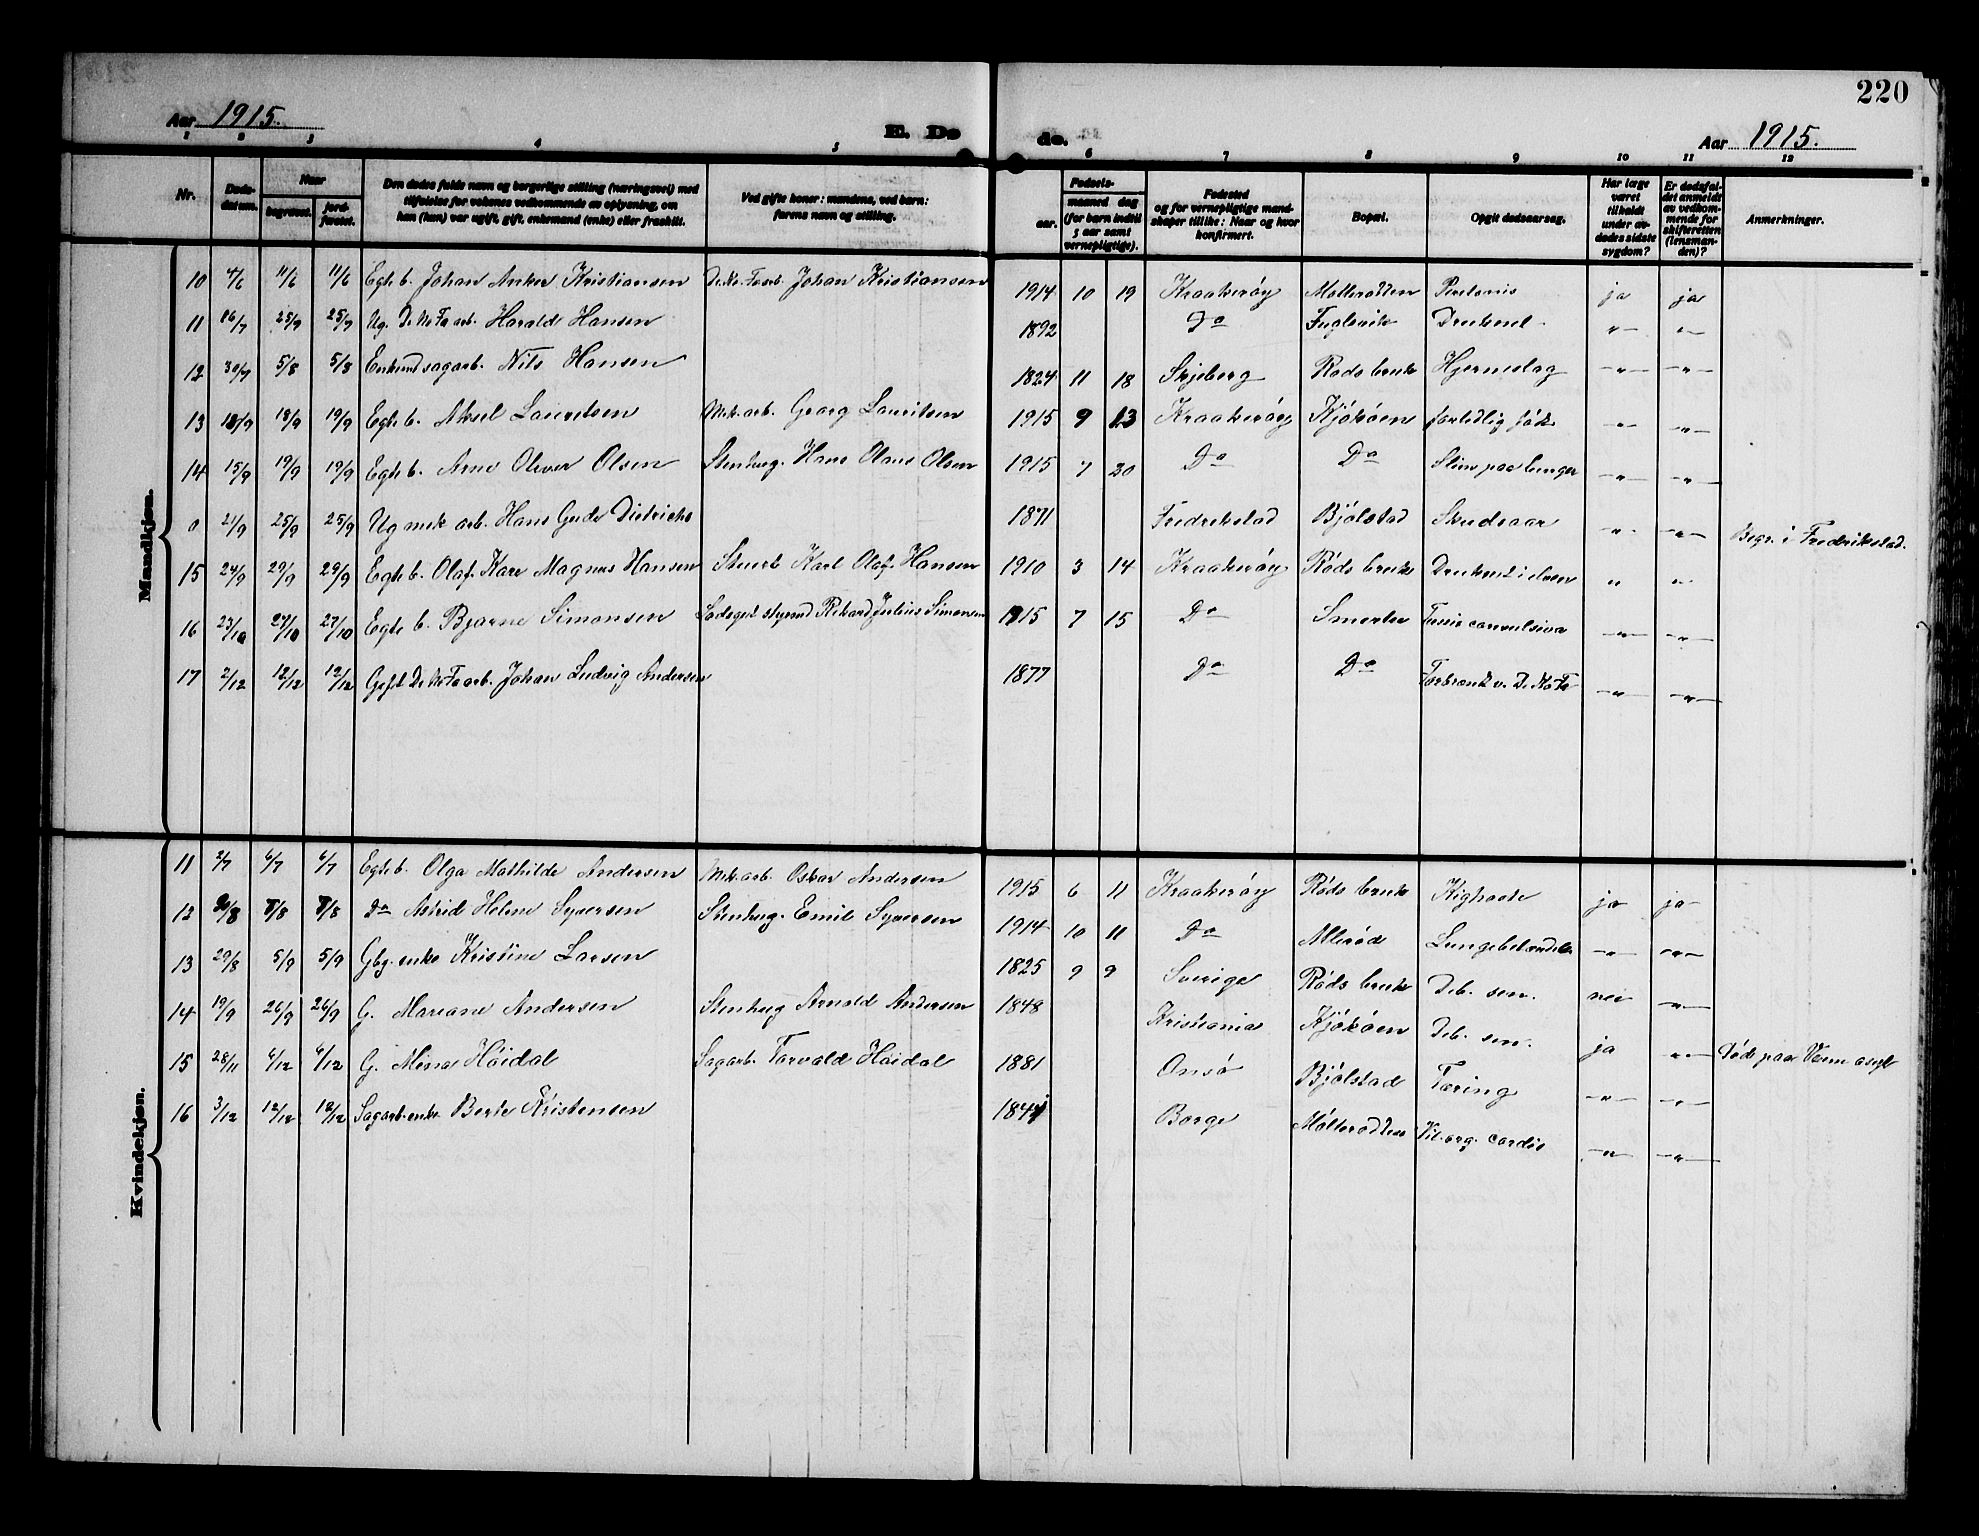 220
Aar 1915. E. Døde. Aar 1915.
1 2 3 4 5 6 7 8 9 10 11 12
Nr. Døds-datum. Naar begravet. jord-fæstet. Den dødes fulde navn og borgerlige stilling (næringsvei) med tilføielse for voksnes vedkommende av oplysning, om han (hun) var ugift, gift, enkemand (enke) eller fraskilt. Ved gifte koner: mandens, ved barn: farens navn og stilling. Fødsels- aar. maaned dag (for barn indtil 5 aar samt vernepligtige). Fødested og for vernepligtige mandskaper tillike: Naar og hvor konfirmert. Bopæl. Opgit dødsaarsag. Har læge været tilkaldt under avdødes sidste sygdom? Er dødsfaldet anmeldt av vedkommende for skifteretten (lensmanden)? Anmerkninger.
Mandkjøn.
10 4/6 11/6 11/6 Egte b. Johan Anker Kristiansen De No. Fa arb. Johan Kristiansen 1914 10 19 Kraakerøy Mølterødten ja ja
11 16/7 25/7 25/7 Ug. De No Fa arb. Harald Hansen 1892 Do Fuglevik Druknet -"- -"-
12 30/7 5/8 5/8 Enkemd sagarb. Nils Hansen 1824 11 18 Skjeberg Røds bruk Hjerneslag -"- -"-
13 18/9 19/9 19/9 Egte b. Aksel Lauritsen Mek. arb. Georg Lauritsen 1915 9 13 Kraakerøy Kjøkøen -"- -"-
14 15/9 19/9 19/9 Egte b. Arne Oliver Olsen Stenhug. Hans Olaus Olsen 1915 7 20 Do Do Slim paa lunger -"- -"-
0 21/9 25/9 25/9 Ug mek arb. Hans Gude Dietrichs 1871 Fredrikstad Bjølstad Skudsaar -"- -"- Begr. i Fredrikstad.
15 24/9 29/9 29/9 Egte b. Olaf Kaare Magnus Hansen Stuerb Karl Olaf Hansen 1910 3 14 Kraakerøy Røds bruk Druknet i elven " -"-
16 23/10 27/10 27/10 Egte b. Bjarne Simonsen Ladeged styrmd Rikard Julius Simonsen 1915 7 15 Do Smertu Tussis convulsiva -"- -"-
17 2/12 12/12 12/12 Gift De No Fa arb. Johan Ludvig Andersen 1877 Do Do Forbrændt v. De No Fa -"- -"-
Kvindekjøn.
11 2/7 6/7 6/7 Egte b. Olga Mathilde Andersen Mek. arb. Oskar Andersen 1915 6 11 Kraakerøy Røds bruk Kighoste ja ja
12 8/8 8/8 Do Astrid Helene Syversen Stenhug. Emil Syversen 1914 10 11 Do Allerød Lungebetændelse -"- -"-
13 29/8 5/9 5/9 Gbg. enke Kristine Larsen 1825 9 9 Sverige Røds bruk Deb. sen. nei -"-
14 19/9 26/9 26/9 G. Mariane Andersen Stenhug Arnold Andersen 1848 Kristiania Kjøkøen Deb. sen. ja -"- Død paa Veum asyl
15 28/11 6/12 6/12 G. Mina Høidal Sagarb. Torvald Høidal 1881 Onsø Bjølstad Tæring -"- -"-
16 3/12 12/12 12/12 Sagarb. enke Berte Kristensen Borge Mølterødten Vit. org. cordis -"- -"-